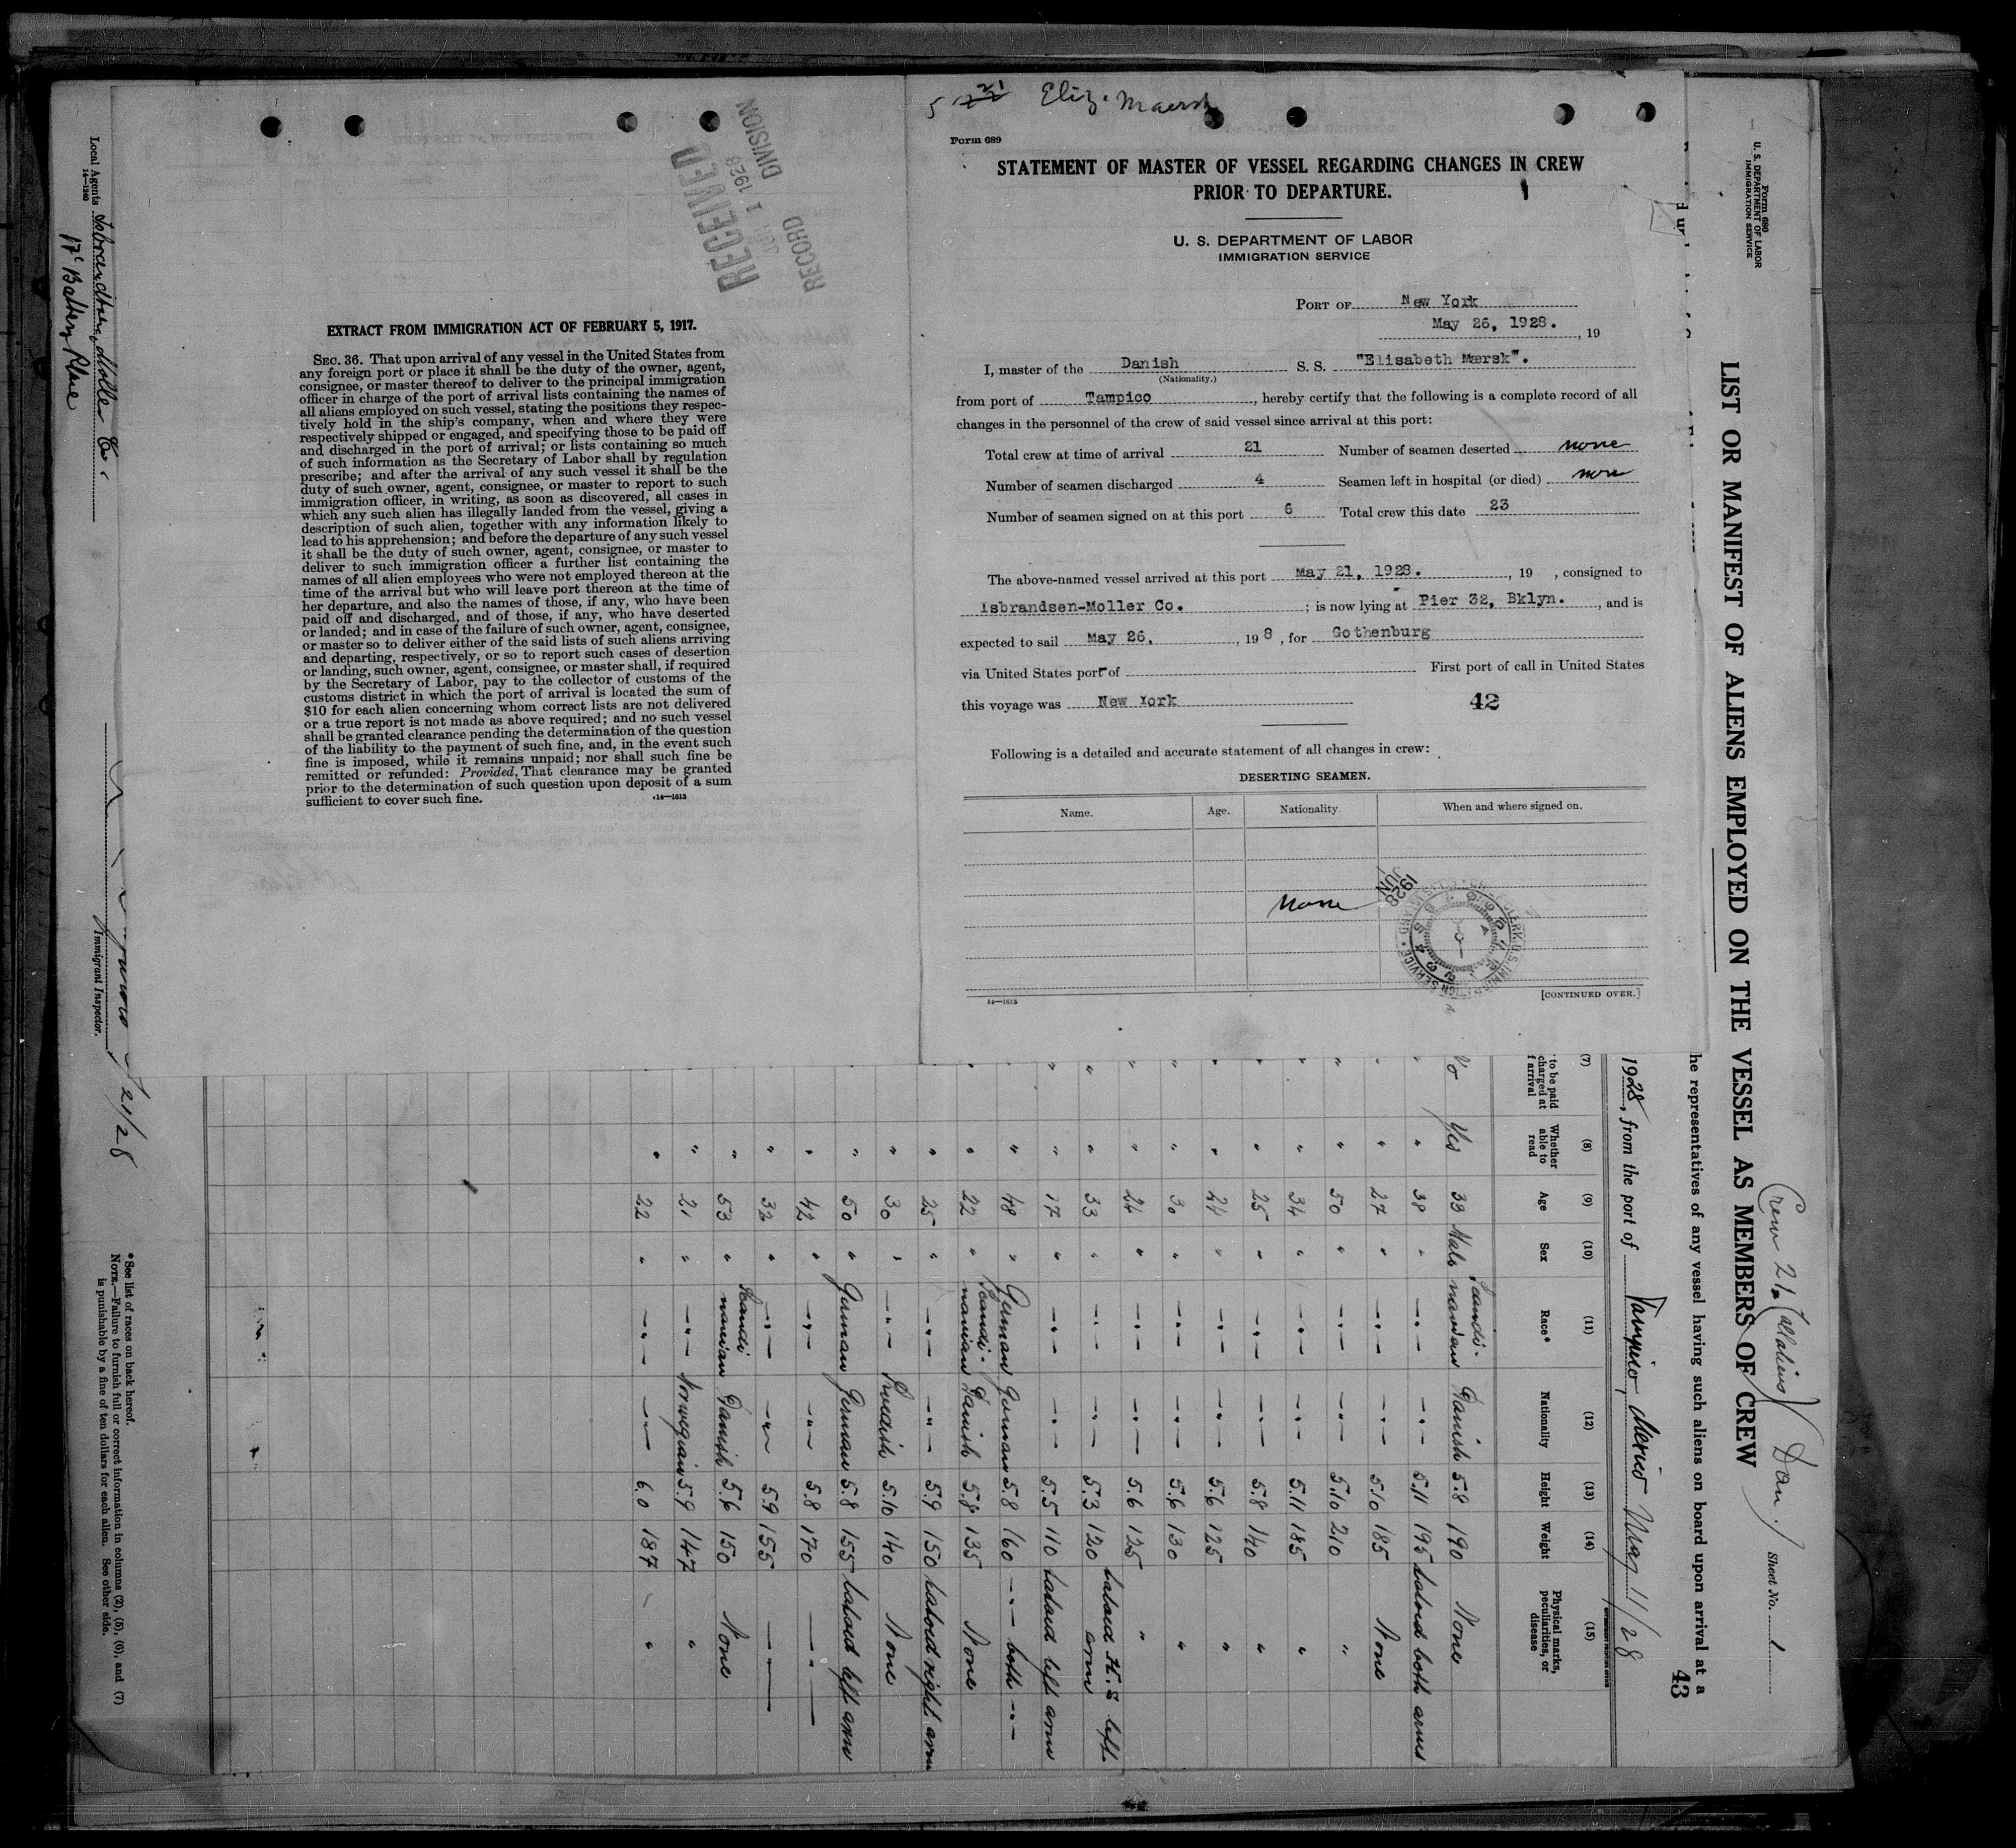 Eliz. Maersk
Form 689
STATEMENT OF MASTER OF VESSEL REGARDING CHANGES IN CREW
PRIOR TO DEPARTURE.
U. S. DEPARTMENT OF LABOR
IMMIGRATION SERVICE
PORT OF New York
May 26, 1928. , 19
I, master of the Danish S. S. "Elisabeth Mærsk".
(Nationality.)
from port of Tampico , hereby certify that the following is a complete record of all
changes in the personnel of the crew of said vessel since arrival at this port:
Total crew at time of arrival 21 Number of seamen deserted none
Number of seamen discharged 4 Seamen left in hospital (or died) none
Number of seamen signed on at this port 6 Total crew this date 23
The above-named vessel arrived at this port May 21, 1928. , 19 , consigned to
Isbrandsen-Moller Co. ; is now lying at Pier 32, Bklyn. , and is
expected to sail May 26, , 19 8 , for Gothenburg
via United States port of First port of call in United States
this voyage was New York 42
Following is a detailed and accurate statement of all changes in crew:
DESERTING SEAMEN.
Name. Age. Nationality When and where signed on.
None
14—1613 [CONTINUED OVER.]
RECEIVED
1 1928
RECORD DIVISION
EXTRACT FROM IMMIGRATION ACT OF FEBRUARY 5, 1917.
SEC. 36. That upon arrival of any vessel in the United States from
any foreign port or place it shall be the duty of the owner, agent,
consignee, or master thereof to deliver to the principal immigration
officer in charge of the port of arrival lists containing the names of
all aliens employed on such vessel, stating the positions they respec-
tively hold in the ship's company, when and where they were
respectively shipped or engaged, and specifying those to be paid off
and discharged in the port of arrival; or lists containing so much
of such information as the Secretary of Labor shall by regulation
prescribe; and after the arrival of any such vessel it shall be the
duty of such owner, agent, consignee, or master to report to such
immigration officer, in writing, as soon as discovered, all cases in
which any such alien has illegally landed from the vessel, giving a
description of such alien, together with any information likely to
lead to his apprehension; and before the departure of any such vessel
it shall be the duty of such owner, agent, consignee, or master to
deliver to such immigration officer a further list containing the
names of all alien employees who were not employed thereon at the
time of the arrival but who will leave port thereon at the time of
her departure, and also the names of those, if any, who have been
paid off and discharged, and of those, if any, who have deserted
or landed; and in case of the failure of such owner, agent, consignee,
or master so to deliver either of the said lists of such aliens arriving
and departing, respectively, or so to report such cases of desertion
or landing, such owner, agent, consignee, or master shall, if required
by the Secretary of Labor, pay to the collector of customs of the
customs district in which the port of arrival is located the sum of
$10 for each alien concerning whom correct lists are not delivered
or a true report is not made as above required; and no such vessel
shall be granted clearance pending the determination of the question
of the liability to the payment of such fine, and, in the event such
fine is imposed, while it remains unpaid; nor shall such fine be
remitted or refunded: Provided, That clearance may be granted
prior to the determination of such question upon deposit of a sum
sufficient to cover such fine. 14—1613
Form 680
U. S. DEPARTMENT OF LABOR
IMMIGRATION SERVICE
Crew 21 (all aliens) Dan.
Sheet No. 1
LIST OR MANIFEST OF ALIENS EMPLOYED ON THE VESSEL AS MEMBERS OF CREW
he representatives of any vessel having such aliens on board upon arrival at a
43
1928, from the port of Tampico, Mexico May 11/28
(7) (8) (9) (10) (11) (12) (13) (14) (15)
to be paid charged at arrival Whether able to read Age Sex Race* Nationality Height Weight Physical marks, peculiarities, or disease
No Yes 33 Male Scandi-navian Danish 5.8 190 None
" 38 " —"— —"— 5.11 195 tatoed both arms
" " 27 " —"— —"— 5.10 185 None
" " 50 " —"— —"— 5.10 210 "
" " 34 " —"— —"— 5.11 185 "
" " 25 " —"— —"— 5.8 140 "
" " 24 " —"— —"— 5.6 125 "
" " 30 " —"— —"— 5.6 130 "
" " 24 " —"— —"— 5.6 125 "
" " 33 " —"— —"— 5.3 120 tatoed H. S left arm
" " 17 " —"— —"— 5.5 110 tatoed left arm
" " 48 " German German 5.8 160 —"— both —"—
" 22 " Scandi-navian Danish 5.8 135 None
" 25 " —"— —"— 5.9 150 tatoed right arm
" 30 " —"— Swedish 5.10 140 None
" 50 " German German 5.8 155 tatoed left arm
" 42 " —"— —"— 5.8 170 —"—
" 32 " —"— —"— 5.9 155 —"—
" 53 " Scandinavian Danish 5.6 150 None
" 21 " —"— Norwegian 5.9 147 "
" 22 " —"— —"— 6.0 187 "
*See list of races on back hereof.
NOTE.—Failure to furnish full or correct information in columns (2), (5), (6), and (7)
is punishable by a fine of ten dollars for each alien. See other side.
Local Agents Isbrandtsen, Moller Co.
14—1240
17 Battery Place
5/21/28
Immigrant Inspector.